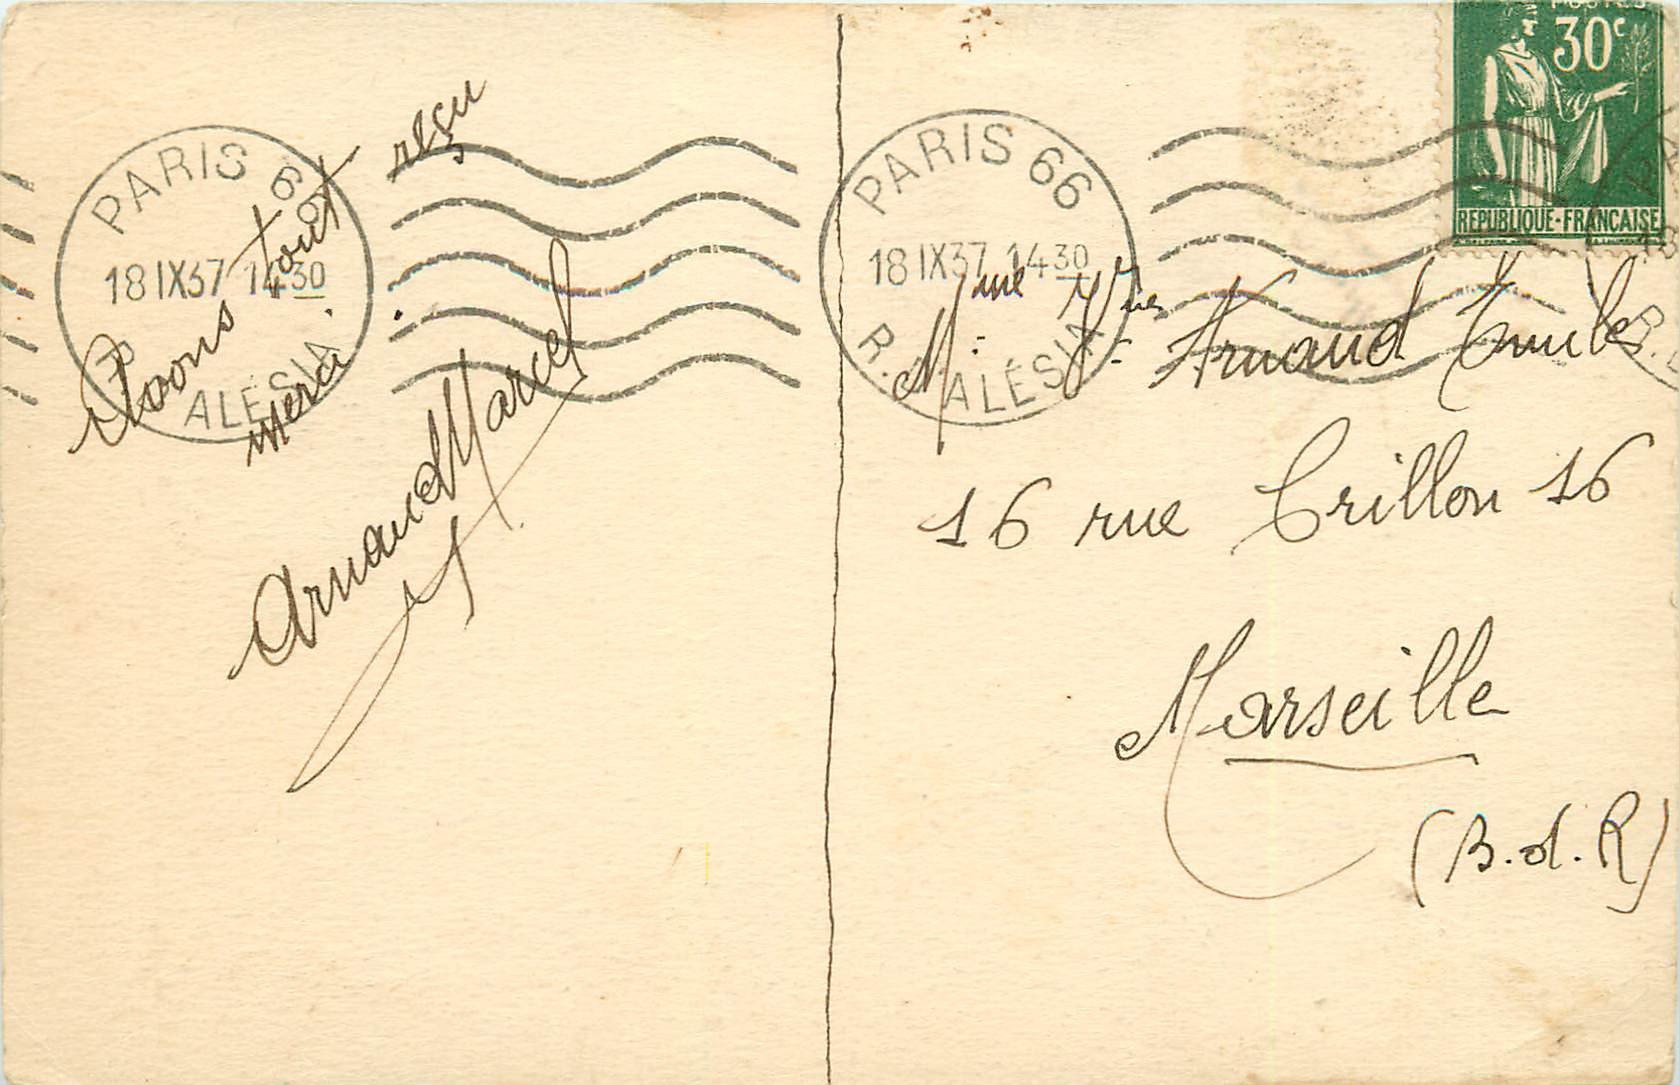 PARIS 66
18 IX 37 14 30
R. ALÉSIA
Avons tout reçu
merci.
Arnaud Marcel
PARIS 66
18 IX 37 1430
R. ALÉSIA
POSTES
30c
REPUBLIQUE-FRANCAISE
Mme Vve Arnaud
16 rue Crillon 16
Marseille
(B.d.R)